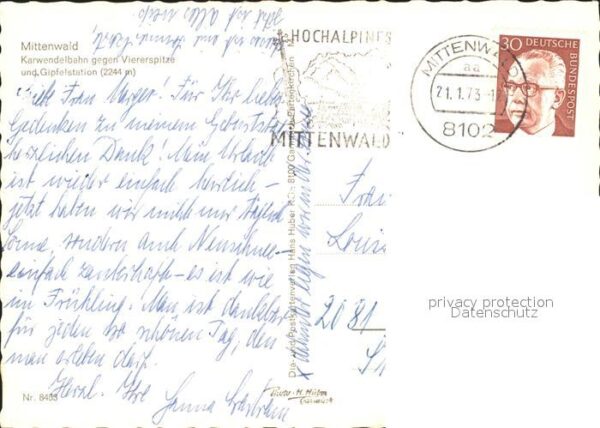 Mittenwald
Karwendelbahn gegen Viererspitze
und Gipfelstation (2244 m)
Liebe Frau Merger! Für Ihr liebes
Gedenken zu meinem Geburtstag
herzlichen Dank! Mein Urlaub
ist wieder einfach herrlich –
jetzt haben wir nicht nur
Sonne, sondern auch Neuschnee –
einfach zauberhaft – es ist wie
im Frühling. Man ist dankbar
für jeden so schönen Tag, den
man erleben darf.
Herzl. Ihre
Hanna
Nr. 8403
HOCHALPINES
MITTENWALD
MITTENWALD
aa
21.1.73
8102
30 DEUTSCHE
BUNDESPOST
Postkartenverlag Hans Huber KG 8100 Garmisch-Partenkirchen
Frau
Louis
2081
Photo H. Huber
Garmisch
privacy protection
Datenschutz